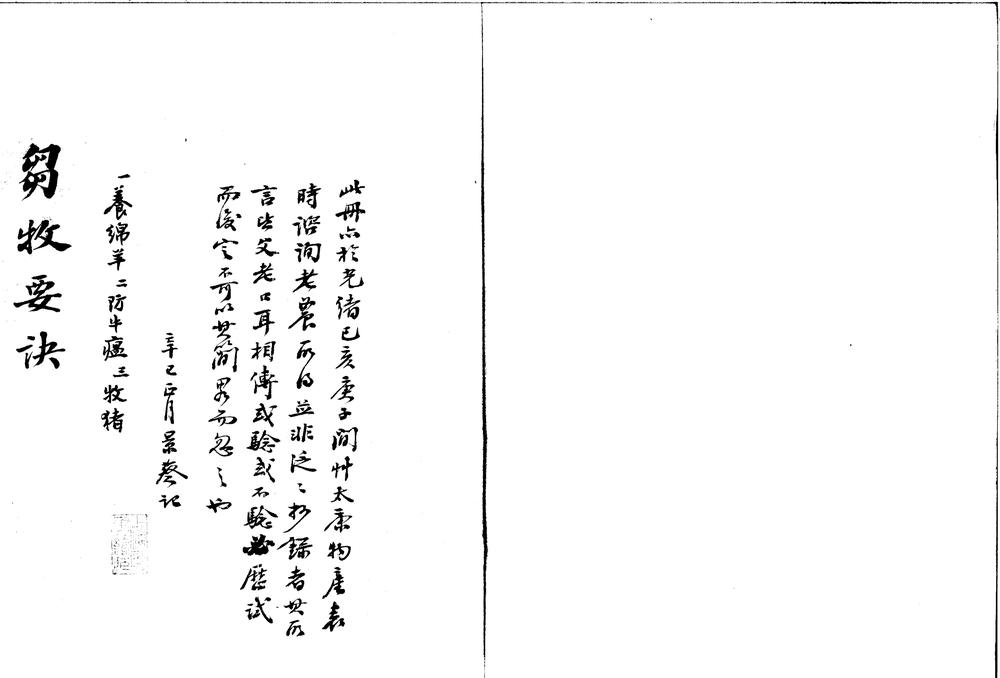 此冊亦於光緒己亥庚子間艸太康物產表
時諮詢老農所得並非泛泛抄錄者其所
言皆父老口耳相傳或驗或不驗必歷試
而後定不可以其簡畧而忽之也
辛巳正月景燊記
一養綿羊二防牛瘟三牧猪
芻牧要訣